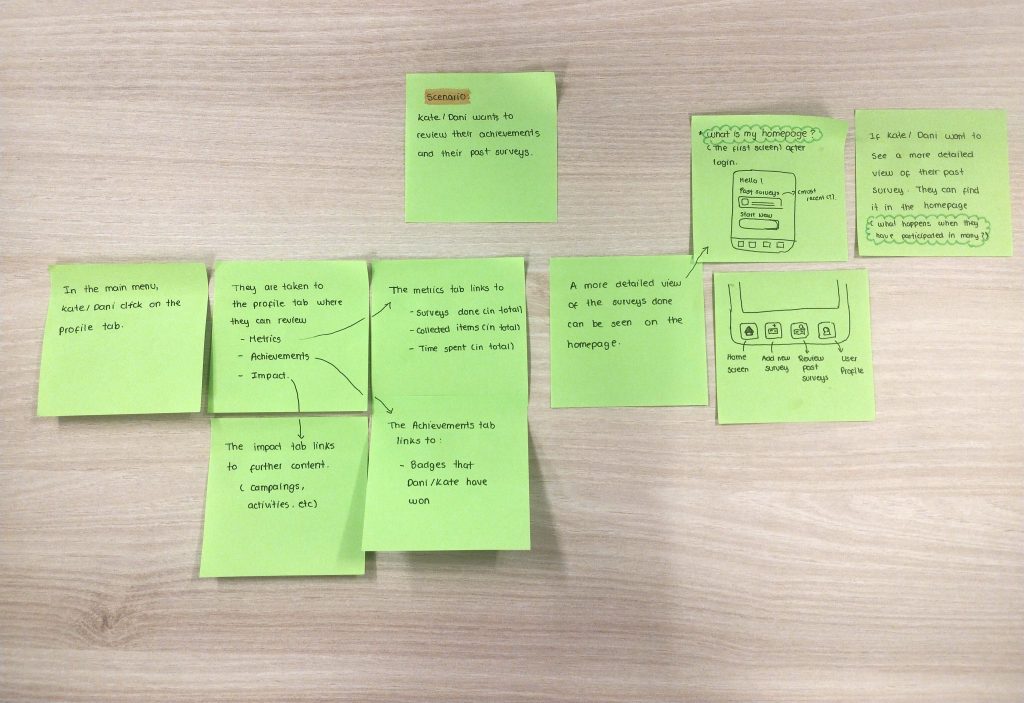 Scenario:
Kate/Dani wants to
review their achievements
and their past surveys.
* what is my homepage?
(The first screen) after
login.
Hello!
Past surveys
(most
recent(?)
Start new
If Kate/Dani want to
see a more detailed
view of their past
survey. They can find
it in the homepage
(what happens when they
have participated in many?)
In the main menu,
Kate/Dani click on the
profile tab.
They are taken to
the profile tab where
they can review
- Metrics
- Achievements
- Impact.
The metrics tab links to
- Surveys done (in total)
- Collected items (in total)
- Time spent (in total)
A more detailed view
of the surveys done
can be seen on the
homepage.
Home
Screen
Add new
survey
Review
past
surveys
User
Profile
The impact tab links
to further content.
( campaings,
activities. etc)
The Achievements tab
links to:
- Badges that
Dani/Kate have
won